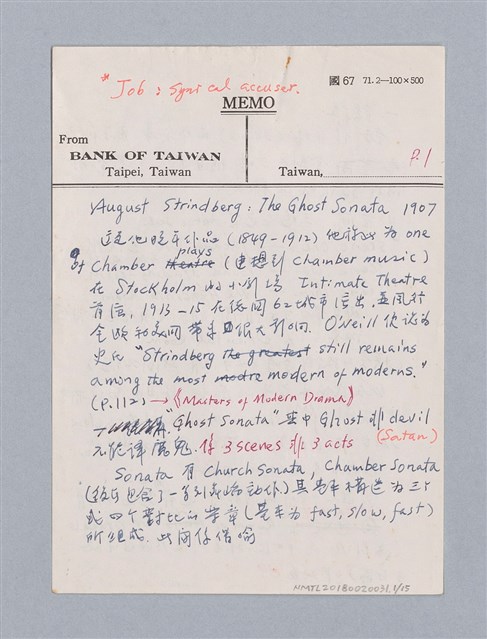 國 67 71.2—100×500
* Job : cynical accuser.
MEMO
From
BANK OF TAIWAN
Taipei, Taiwan
Taiwan,
P.1
August Strindberg : The Ghost Sonata 1907
這是他晚年作品 (1849-1912) 他稱以為 one
of Chamber theatre plays (連想到 chamber music)
在 Stockholm 的小劇場 Intimate Theatre
首演, 1913-15 在德國 62 城市演出, 並風行
全歐和美國 帶來很大影响. O'Neill 便認為
史氏 "Strindberg the greatest still remains
among the most modern of moderns."
(P.112) → 《Masters of Modern Drama》
"Ghost Sonata" 其中 Ghost 非 devil
不能譯魔鬼. 係 3 scenes 非 3 acts (Satan)
Sonata 有 Church Sonata, Chamber Sonata
(後者包含了一系列 動作) 其 構造為三个
或四个對比的樂章 (是率為 fast, slow, fast)
所組成. 此間係借喻
NMTL20180020031, 1/15